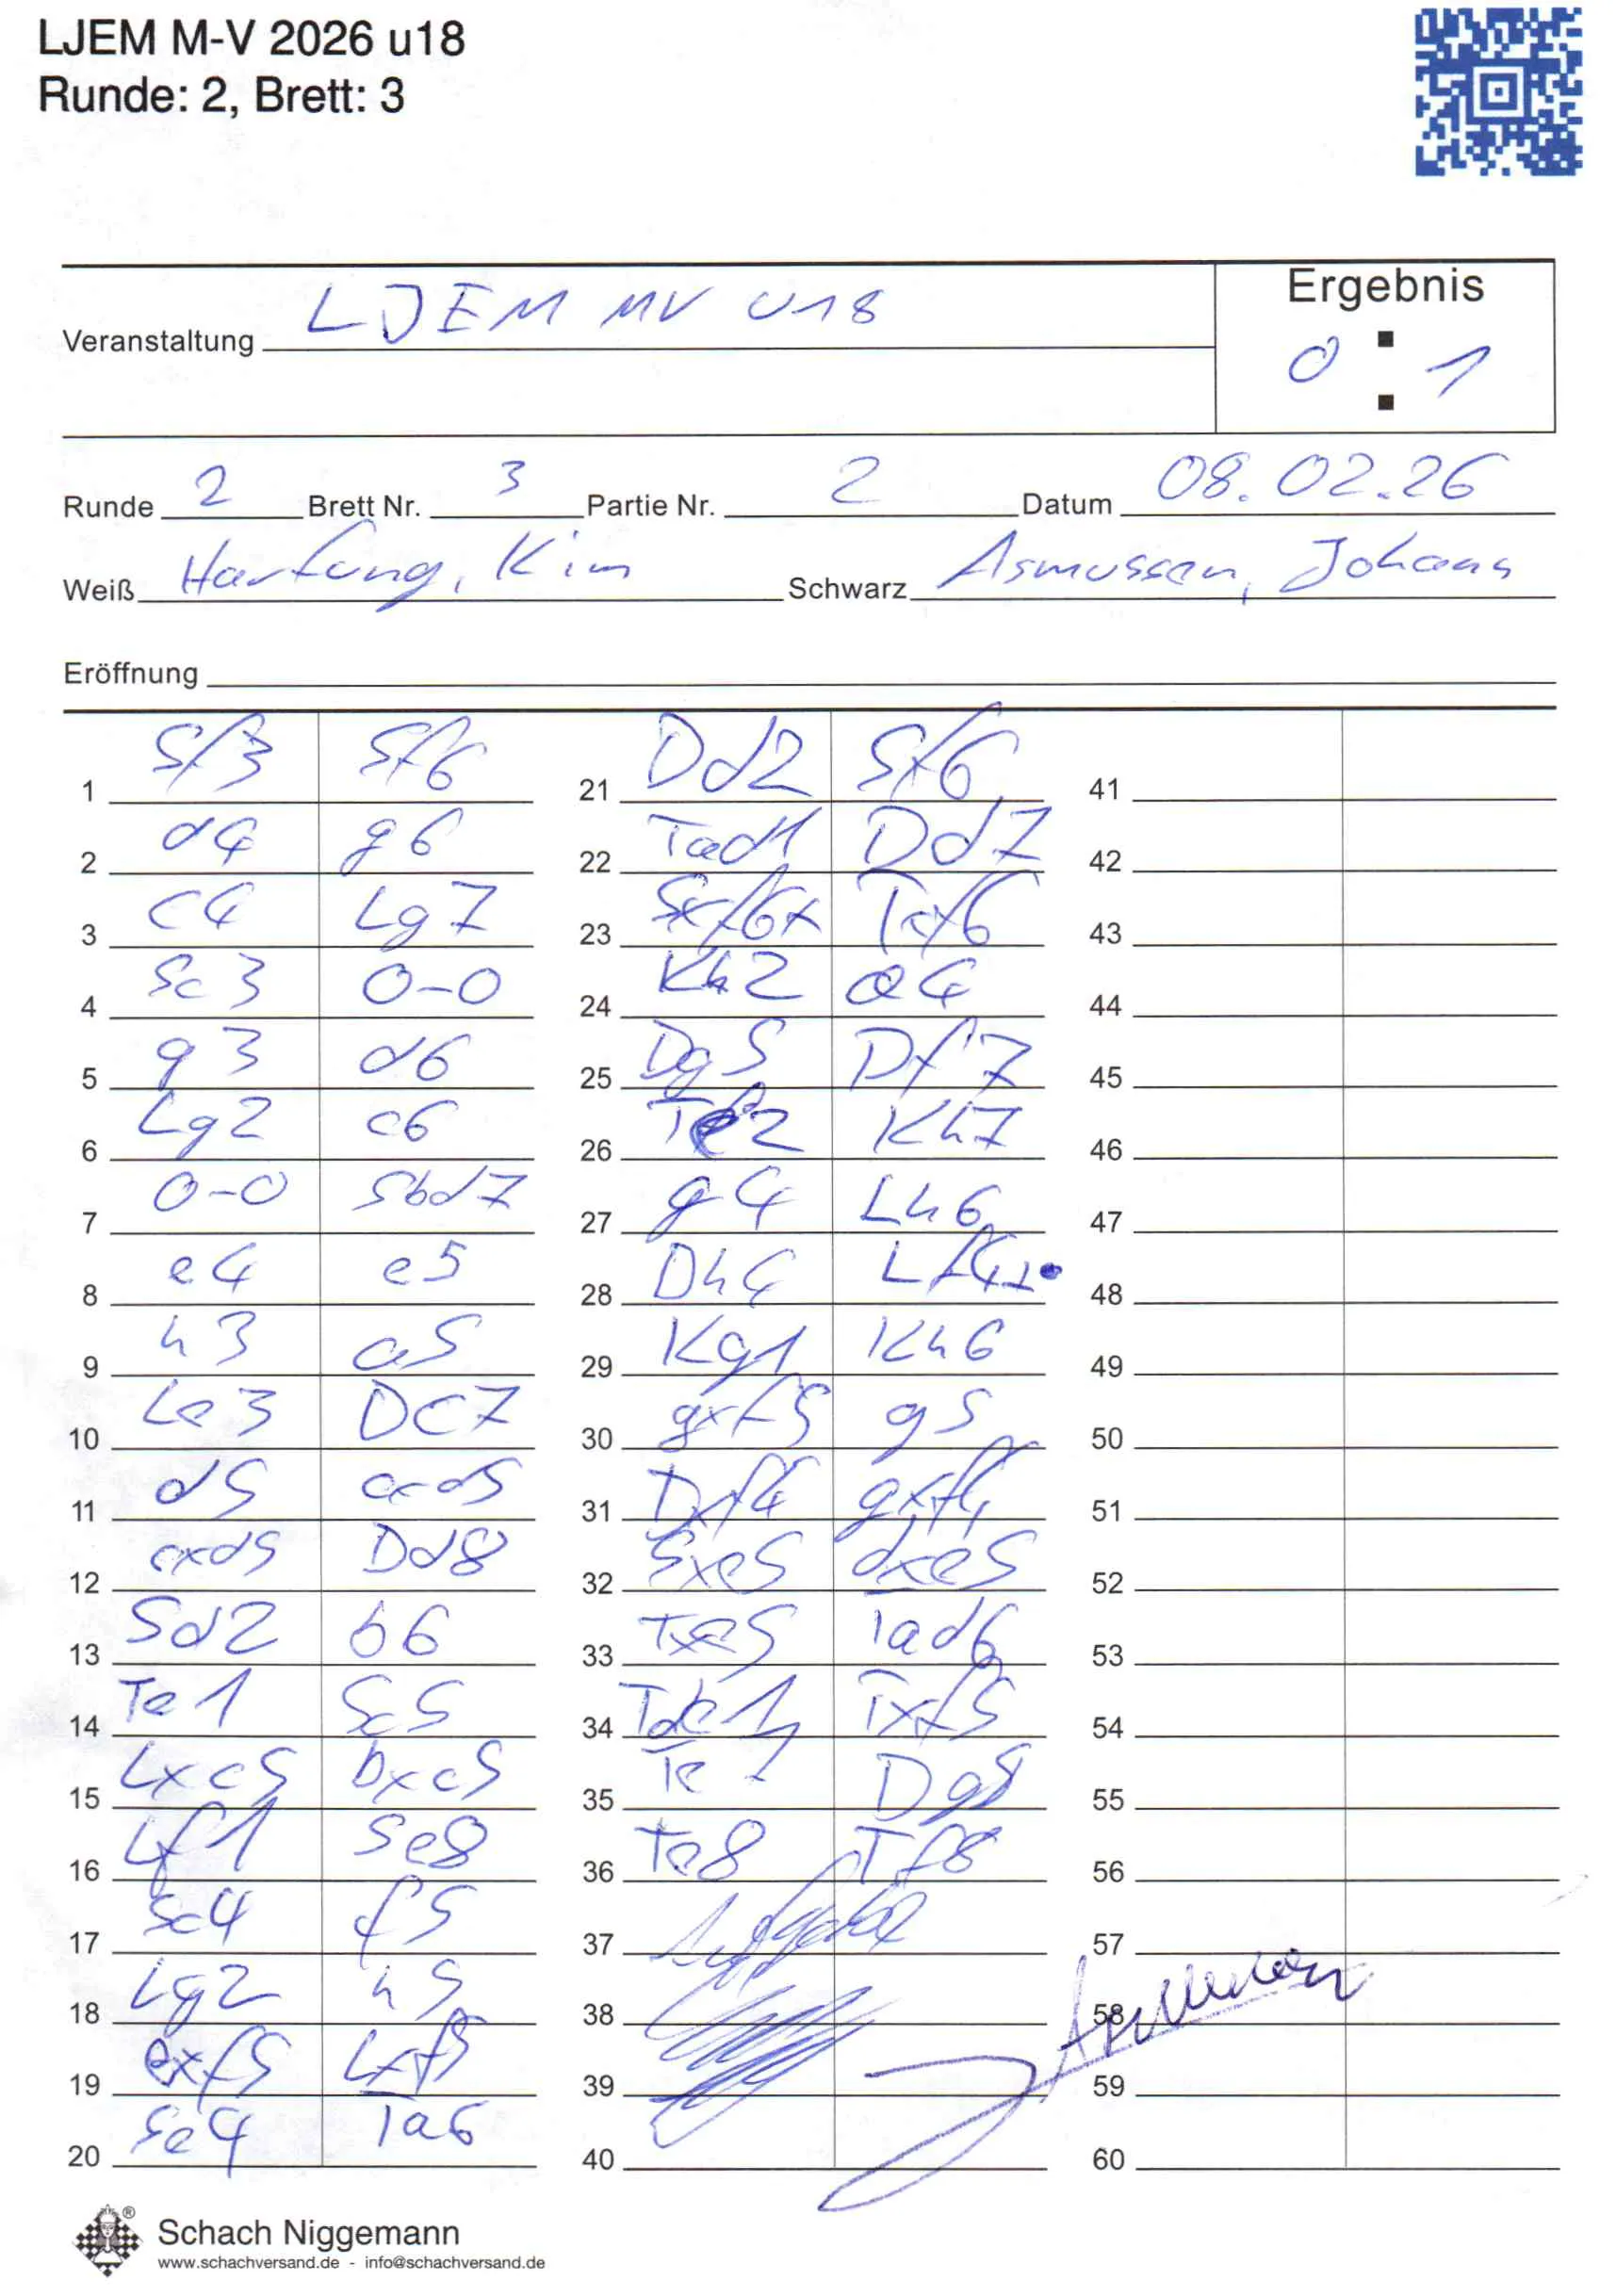 LJEM M-V 2026 u18
Runde: 2, Brett: 3
Veranstaltung LJEM MV U18
Ergebnis
0 : 1
Runde 2 Brett Nr. 3 Partie Nr. 2 Datum 08.02.26
Weiß Hartung, Kim Schwarz Asmussen, Johann
Eröffnung
1 Sf3 Sf6
2 d4 g6
3 c4 Lg7
4 Sc3 0-0
5 g3 d6
6 Lg2 c6
7 0-0 Sbd7
8 e4 e5
9 h3 a5
10 Le3 Dc7
11 d5 cxd5
12 cxd5 Dd8
13 Sd2 b6
14 Te1 Sc5
15 Lxc5 bxc5
16 Lf1 Se8
17 Sc4 f5
18 Lg2 h5
19 exf5 Lxf5
20 Se4 Ta6
21 Dd2 Sf6
22 Tad1 Dd7
23 Sxf6+ Txf6
24 Kh2 a4
25 Dg5 Df7
26 Te2 Kh7
27 g4 Lh6
28 Dh4 Lf4+
29 Kg1 Kh6
30 gxf5 g5
31 Dxf4 gxf4
32 Sxe5 dxe5
33 Txe5 Tad6
34 Tde1 Txf5
35 Te7 Dg8
36 Te8 Tf8
37 Aufgabe
38
39
40
41
42
43
44
45
46
47
48
49
50
51
52
53
54
55
56
57
58 Asmussen
59
60
Schach Niggemann
www.schachversand.de - info@schachversand.de